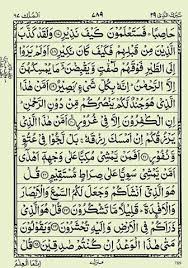 الملك ٦٧ ٧٨٩ تبرك الذي ٢٩
حَاصِبًا ؕ فَسَتَعْلَمُوْنَ كَيْفَ نَذِيْرِ ۝ وَلَقَدْ كَذَّبَ
الَّذِيْنَ مِنْ قَبْلِهِمْ فَكَيْفَ كَانَ نَكِيْرِ ۝ اَوَلَمْ يَرَوْا
اِلَى الطَّيْرِ فَوْقَهُمْ صٰٓفّٰتٍ وَّيَقْبِضْنَ ؕ مَا يُمْسِكُهُنَّ
اِلَّا الرَّحْمٰنُ ؕ اِنَّهٗ بِكُلِّ شَيْءٍۭ بَصِيْرٌ ۝ اَمَّنْ هٰذَا
الَّذِيْ هُوَ جُنْدٌ لَّكُمْ يَنْصُرُكُمْ مِّنْ دُوْنِ الرَّحْمٰنِ ؕ
اِنِ الْكٰفِرُوْنَ اِلَّا فِيْ غُرُوْرٍ ۝ اَمَّنْ هٰذَا الَّذِيْ
يَرْزُقُكُمْ اِنْ اَمْسَكَ رِزْقَهٗ ۚ بَلْ لَّجُّوْا فِيْ عُتُوٍّ
وَّنُفُوْرٍ ۝ اَفَمَنْ يَّمْشِيْ مُكِبًّا عَلٰى وَجْهِهٖٓ اَهْدٰٓى
اَمَّنْ يَّمْشِيْ سَوِيًّا عَلٰى صِرَاطٍ مُّسْتَقِيْمٍ ۝ قُلْ هُوَ
الَّذِيْٓ اَنْشَاَكُمْ وَجَعَلَ لَكُمُ السَّمْعَ وَالْاَبْصَارَ
وَالْاَفْـِٕدَةَ ؕ قَلِيْلًا مَّا تَشْكُرُوْنَ ۝ قُلْ هُوَ الَّذِيْ
ذَرَاَكُمْ فِي الْاَرْضِ وَاِلَيْهِ تُحْشَرُوْنَ ۝ وَيَقُوْلُوْنَ
مَتٰى هٰذَا الْوَعْدُ اِنْ كُنْتُمْ صٰدِقِيْنَ ۝ قُلْ
اِنَّمَا الْعِلْمُ